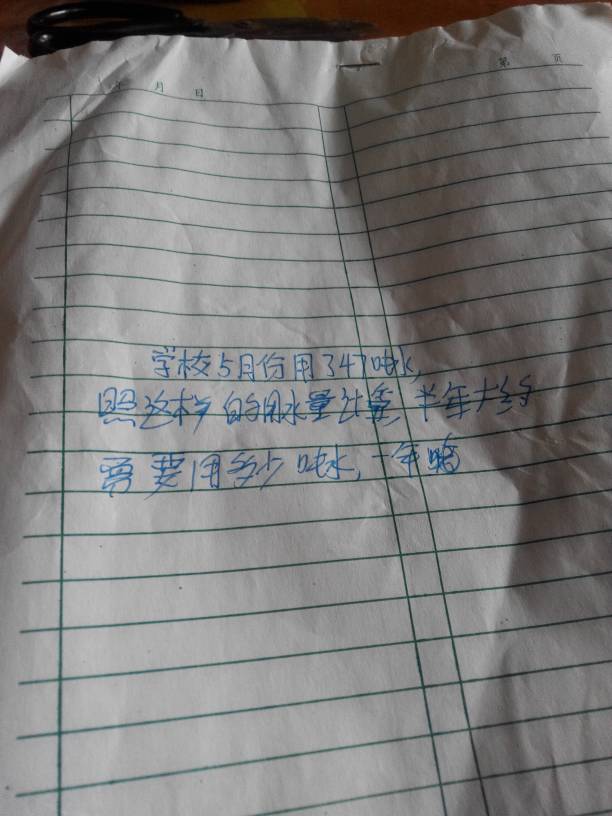 年 月 日
第 页
学校5月份用347吨水,
照这样的用水量计算,半年大约
需要用多少吨水,一年呢